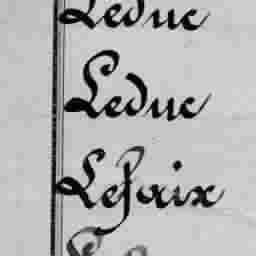 Leduc
Leduc
Lefaix